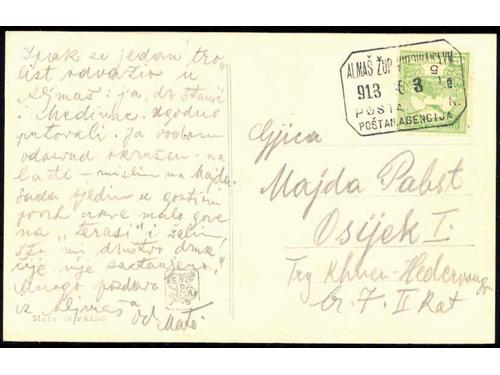 Ipak se jedan tro
list odvažio u
Aljmaš: ja, dr.
i Medinac. Ugodno
putovali. Ja vodom
odasvud okružen - na
lađi - mislim na Majdu
Sada sjedim u gostioni
povrh crkve malo gore
na "terasi" i žalim,
što mi društvo druk
čije nije sastavljeno.
Mnogo pozdrava
iz Aljmaša
od Mate
MADE IN FRANCE
ALMAŠ ŽUP.
913 6 3
5
POŠTA N.
POŠTAN. AGENCIJA
Gjica
Majda Pabst
Osijek I.
Trg Khuen-Hedervary
br. 7. II kat